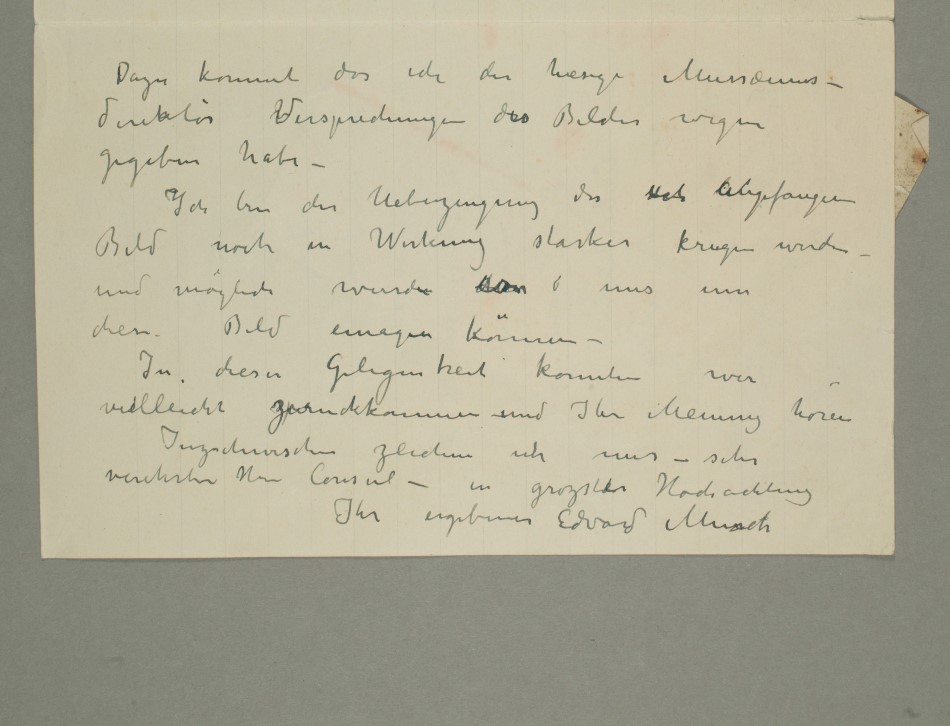 Dazu kommt das ich der hiesige Mussæums–
direktör Versprechungen des Bildes wegen
gegeben habe –
Ich bin der Ueberzeugung das angefangene
Bild noch in Wirkung starker kriegen werde –
und möglich wurde uns um
diese Bild einigen können –
In dieser Gelegenheit konnten wir
vielleicht zurückkommen und Ihr Meinung hören
Inzschwischen zeichne ich mich – sehr
verehrter Herr Consul – in grözster Hochachtung
Ihr ergebener Edvard Munch